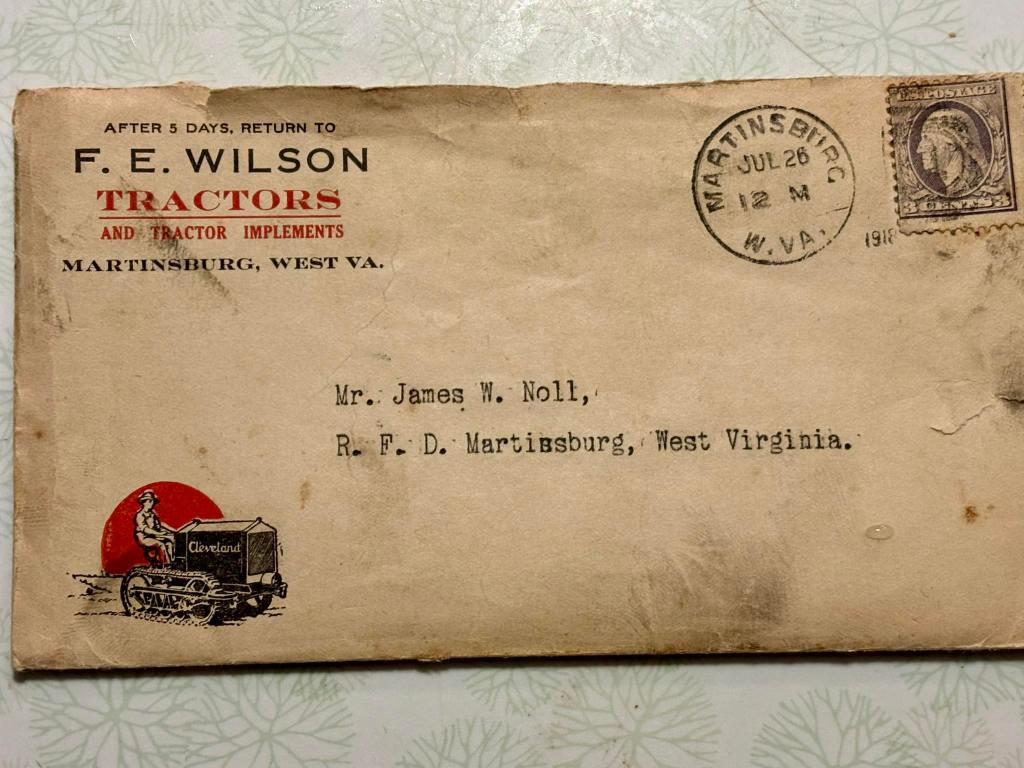 AFTER 5 DAYS, RETURN TO
F. E. WILSON
TRACTORS
AND TRACTOR IMPLEMENTS
MARTINSBURG, WEST VA.
MARTINSBURG
JUL 26
12 M
W. VA.
1918
U.S. POSTAGE
3 CENTS 3
Mr. James W. Noll,
R. F. D. Martinsburg, West Virginia.
Cleveland